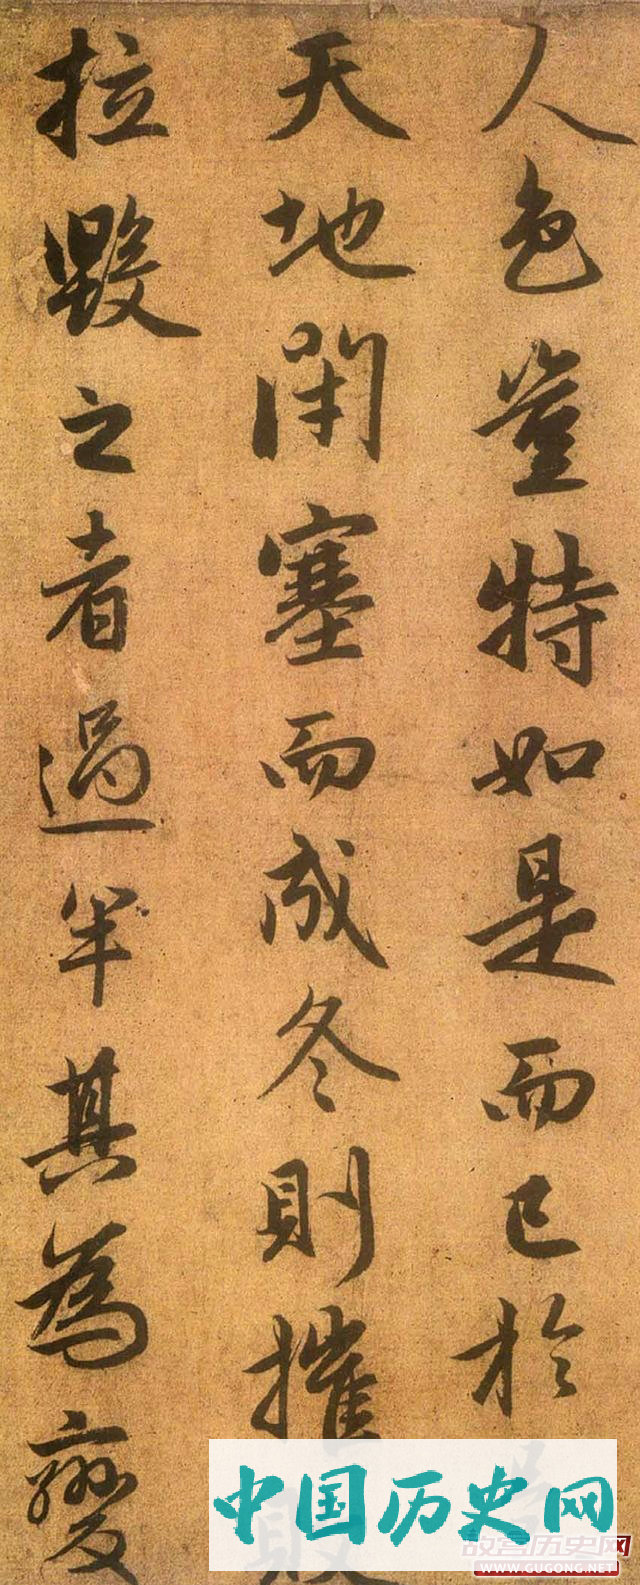 人色豈特如是而已於
天地閉塞而成冬則摧
拉毀之者過半其為變
中国历史网
故宫历史网
WWW.GUGONG.NET